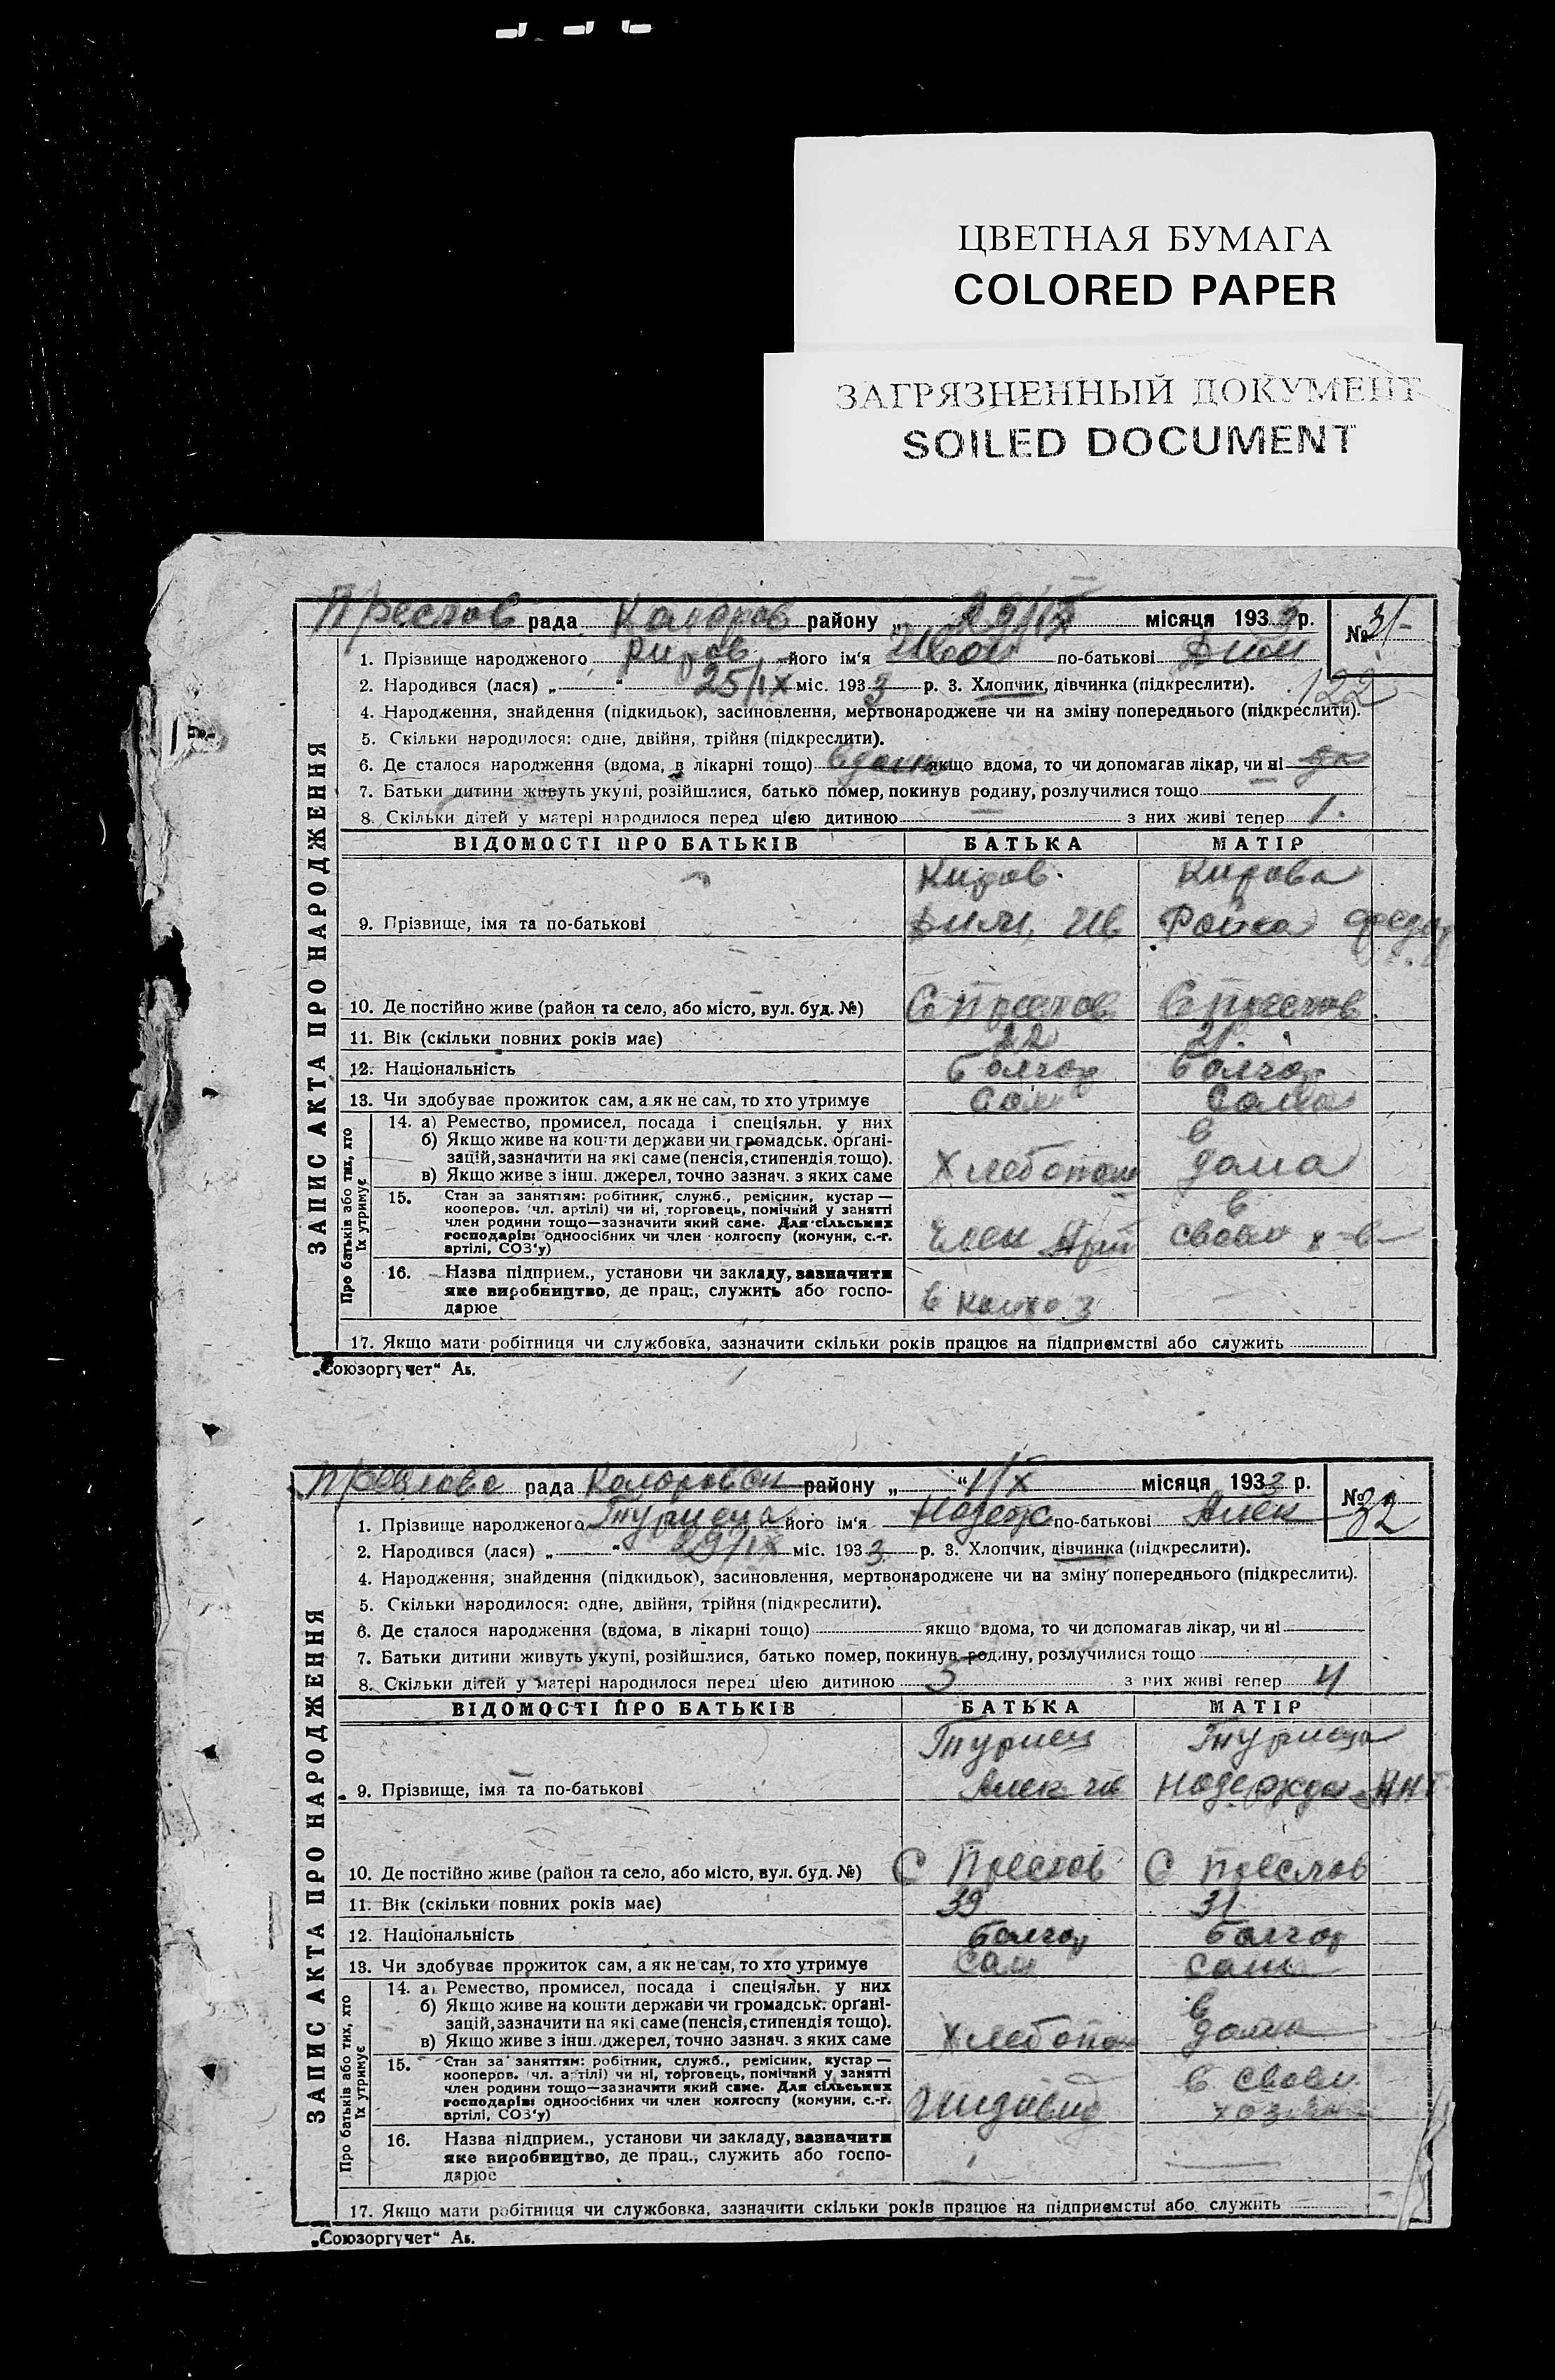 ЦВЕТНАЯ БУМАГА
COLORED PAPER
ЗАГРЯЗНЕННЫЙ ДОКУМЕНТ
SOILED DOCUMENT
Преслов рада Коларов районy „ 29/IX місяця 1933 р. № 31
1. Прізвище народженого Киров його ім'я Иван по-батькові Дим
2. Народився (лася) „ " 25/IX міс. 1933 р. 3. Хлопчик, дівчинка (підкреслити). 122
4. Народження, знайдення (підкидьок), засиновлення, мертвонароджене чи на зміну попереднього (підкреслити).
5. Скільки народилося: одне, двійня, трійня (підкреслити).
6. Де сталося народження (вдома, в лікарні тощо) вдома якщо вдома, то чи допомагав лікар, чи ні
7. Батьки дитини живуть укупі, розійшлися, батько помер, покинув родину, розлучилися тощо
8. Скільки дітей у матері народилося перед цією дитиною — з них живі тепер 1.
ЗАПИС АКТА ПРО НАРОДЖЕННЯ
ВІДОМОСТІ ПРО БАТЬКІВ БАТЬКА МАТІР
Киров Кирова
9. Прізвище, імя та по-батькові Дим, Ив Райка Федор
10. Де постійно живе (район та село, або місто, вул. буд. №) С Преслов С Преслов
11. Вік (скільки повних років має) 22 21.
12. Національність Болгар Болгар
13. Чи здобуває прожиток сам, а як не сам, то хто утримує Сам Сама
Про батьків або тих, хто їх утримує
14. а) Ремество, промисел, посада і спеціяльн. у них
б) Якщо живе на кошти держави чи громадськ. орґані-
зацій, зазначити на які саме (пенсія, стипендія тощо).
в) Якщо живе з інш. джерел, точно зазнач. з яких саме Хлебопаш в дома
15. Стан за заняттям: робітник, служб., ремісник, кустар —
кооперов. (чл. артілі) чи ні, торговець, помічний у занятті
член родини тощо—зазначити який саме. Для сільських
господарів: одноосібних чи член колгоспу (комуни, с.-г.
артілі, СОЗ'у) Член Арт в своем х-в-
16. Назва підприєм., установи чи закладу, зазначити
яке виробництво, де прац., служить або госпо-
дарює в колхоз
17. Якщо мати робітниця чи службовка, зазначити скільки років працює на підприємстві або служить
„Союзоргучет“ Ав.
Преслова рада Коларовск районy „ “ 1/X місяця 1933 р. № 32
1. Прізвище народженого Турица його ім'я Надеж по-батькові Алек
2. Народився (лася) „ " 29/IX міс. 1933 р. 3. Хлопчик, дівчинка (підкреслити).
4. Народження, знайдення (підкидьок), засиновлення, мертвонароджене чи на зміну попереднього (підкреслити).
5. Скільки народилося: одне, двійня, трійня (підкреслити).
6. Де сталося народження (вдома, в лікарні тощо) якщо вдома, то чи допомагав лікар, чи ні
7. Батьки дитини живуть укупі, розійшлися, батько помер, покинув родину, розлучилися тощо
8. Скільки дітей у матері народилося перед цією дитиною 5 з них живі тепер 4
ЗАПИС АКТА ПРО НАРОДЖЕННЯ
ВІДОМОСТІ ПРО БАТЬКІВ БАТЬКА МАТІР
Туриец Турица
9. Прізвище, імя та по-батькові Алек Ив Надежда Ант
10. Де постійно живе (район та село, або місто, вул. буд. №) С Преслов С Преслов
11. Вік (скільки повних років має) 39 31
12. Національність Болгар Болгар
13. Чи здобуває прожиток сам, а як не сам, то хто утримує Сам Сама
Про батьків або тих, хто їх утримує
14. а) Ремество, промисел, посада і спеціяльн. у них
б) Якщо живе на кошти держави чи громадськ. орґані-
зацій, зазначити на які саме (пенсія, стипендія тощо).
в) Якщо живе з інш. джерел, точно зазнач. з яких саме Хлебопаш в дома
15. Стан за заняттям: робітник, служб., ремісник, кустар —
кооперов. (чл. артілі) чи ні, торговець, помічний у занятті
член родини тощо—зазначити який саме. Для сільських
господарів: одноосібних чи член колгоспу (комуни, с.-г.
артілі, СОЗ'у) Индивид в своем
16. Назва підприєм., установи чи закладу, зазначити
яке виробництво, де прац., служить або госпо-
дарює
17. Якщо мати робітниця чи службовка, зазначити скільки років працює на підприємстві або служить
„Союзоргучет“ Ав.